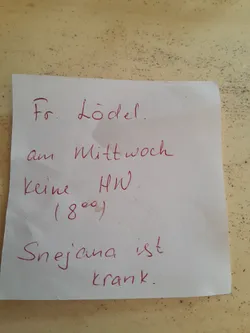 Fr. Lödel.
am Mittwoch
keine HW.
(8⁰⁰)
Snejana ist
krank.